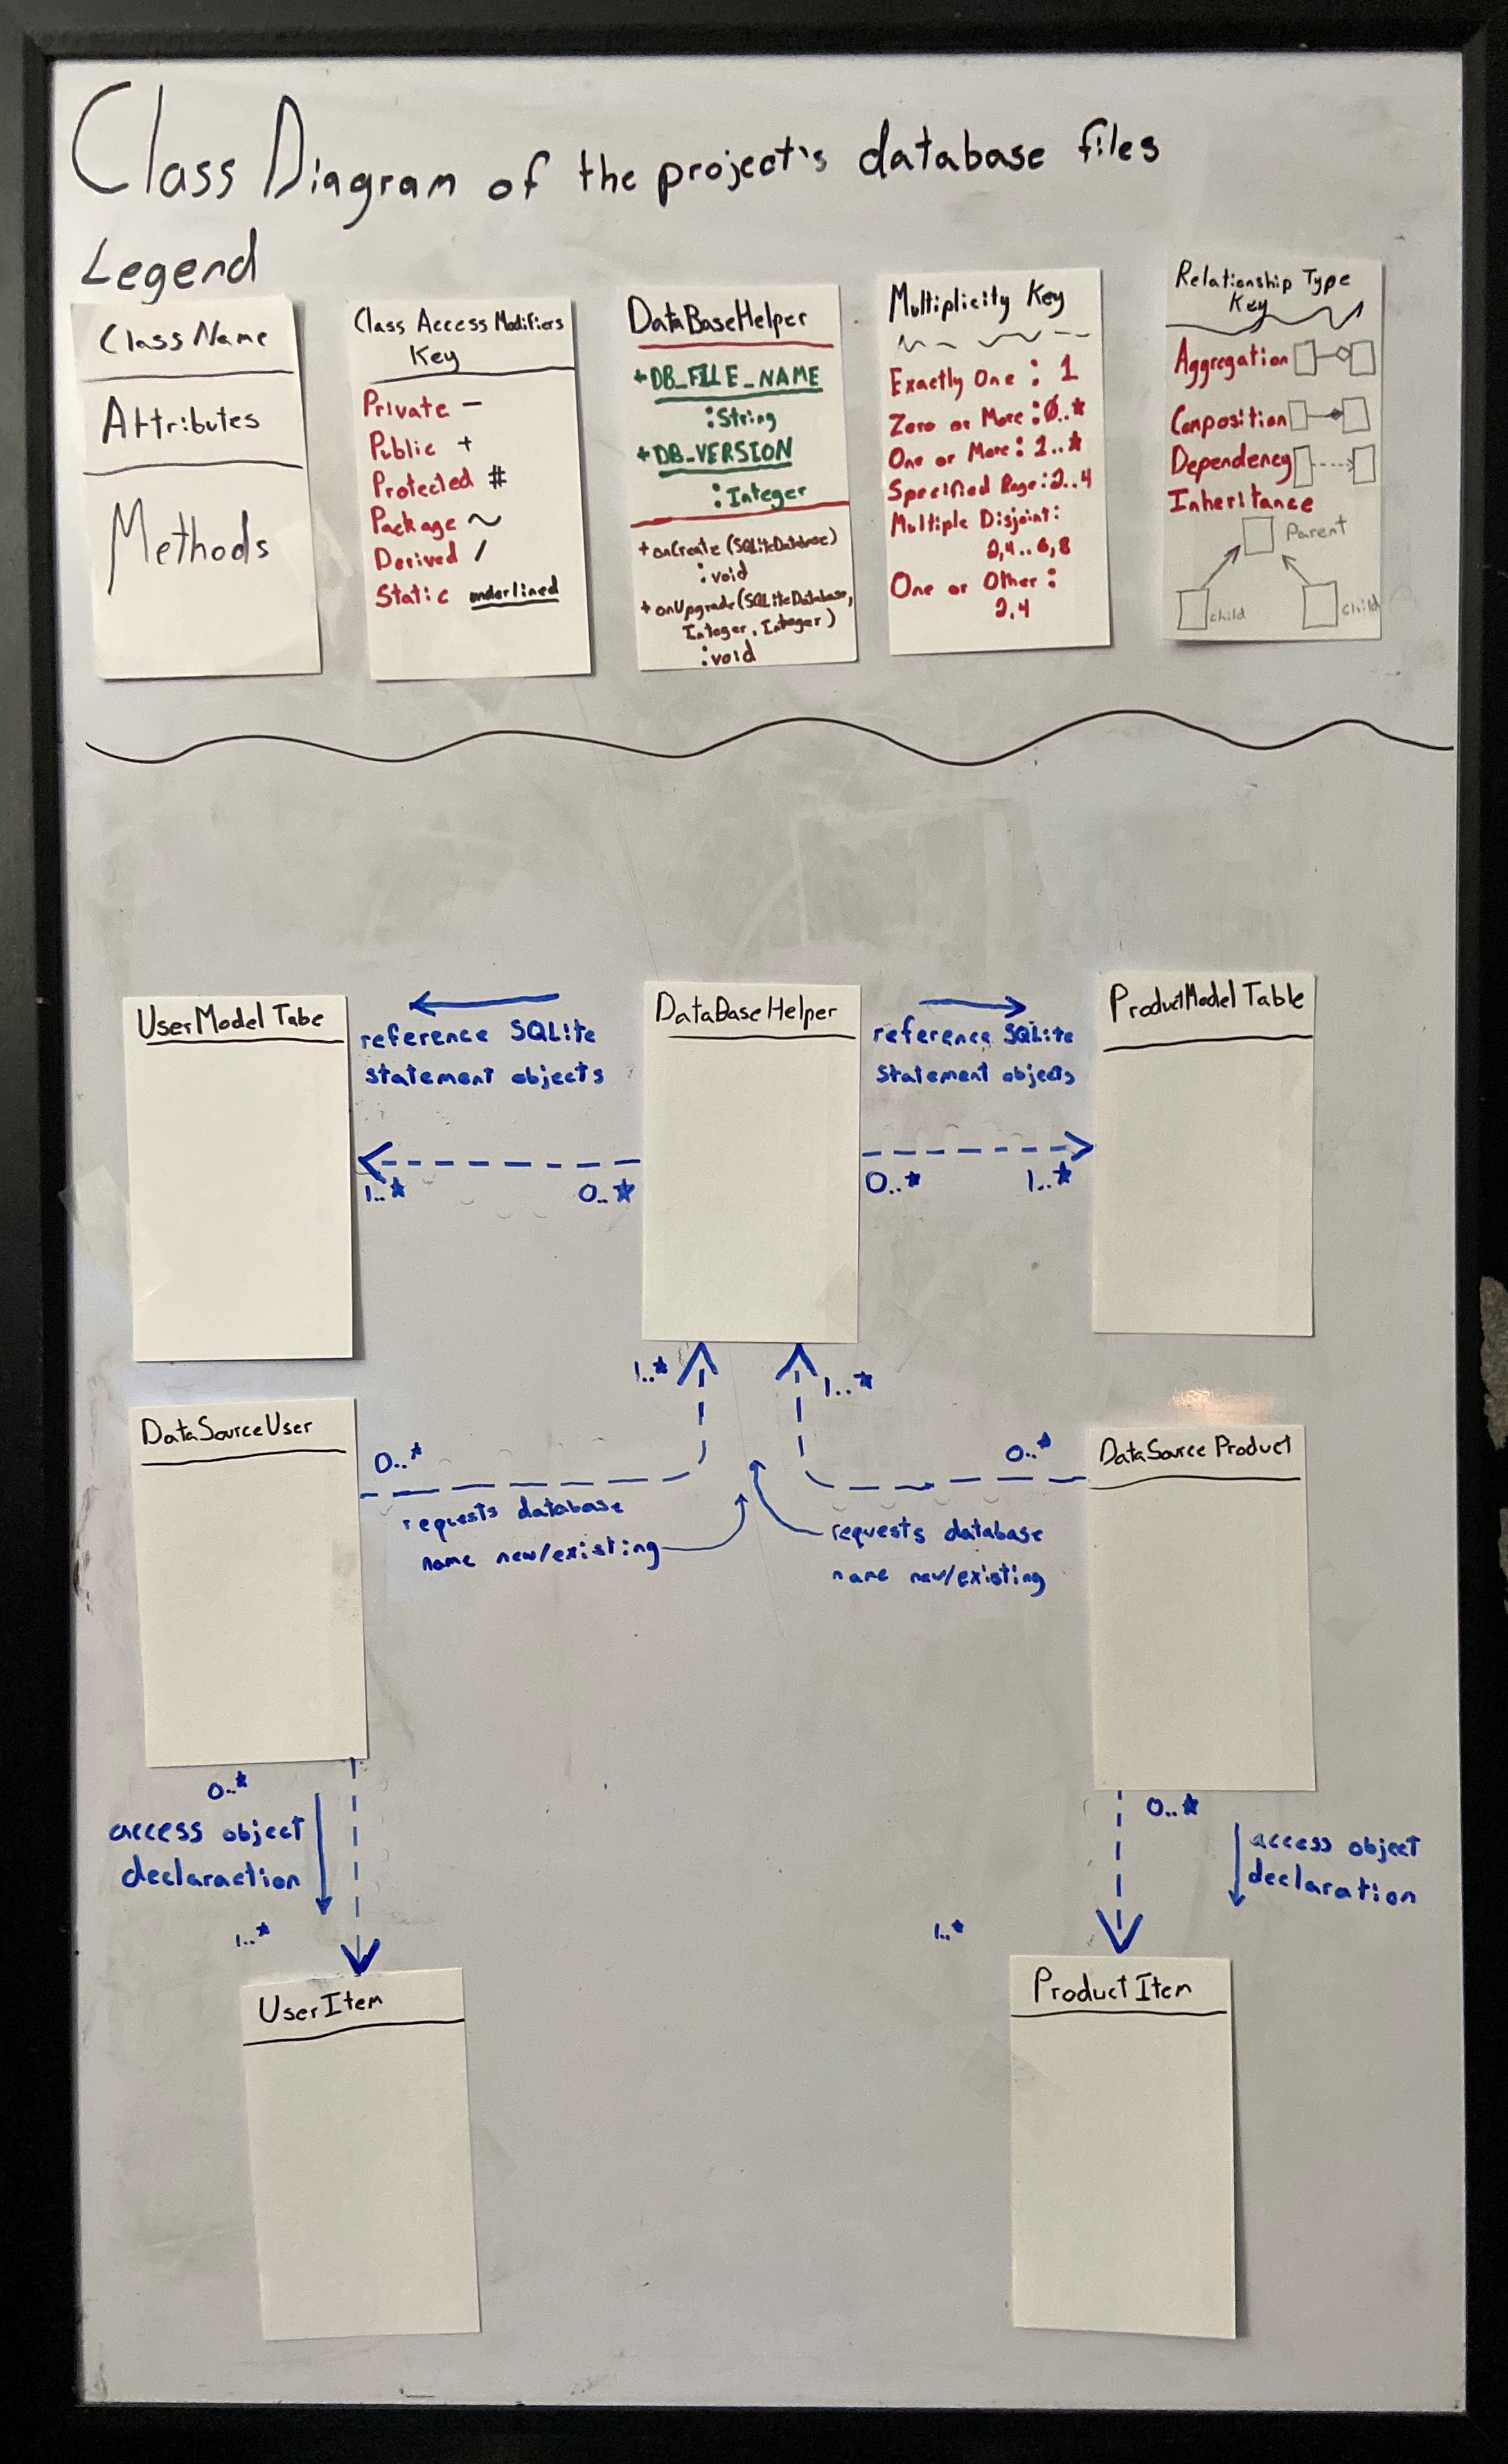 Class Diagram of the project's database files
Legend
Class Name
Attributes
Methods
Class Access Modifiers
Key
Private -
Public +
Protected #
Package ~
Derived /
Static underlined
DataBaseHelper
+DB_FILE_NAME
:String
+DB_VERSION
:Integer
+onCreate(SQLiteDatabase)
:void
+onUpgrade(SQLiteDatabase,
Integer, Integer)
:void
Multiplicity Key
Exactly One : 1
Zero or More : 0..*
One or More : 1..*
Specified Rage : 2..4
Multiple Disjoint:
2,4..6,8
One or Other :
2,4
Relationship Type
Key
Aggregation
Composition
Dependency
Inheritance
Parent
child
child
UserModel Tabe
reference SQLite
statement objects
1..*
0..*
DataBaseHelper
reference SQLite
statement objects
0..*
1..*
ProductModel Table
1..*
1..*
DataSourceUser
0..*
requests database
name new/existing
0..*
requests database
name new/existing
DataSource Product
0..*
access object
declaraction
1..*
UserItem
0..*
access object
declaration
1..*
Product Item